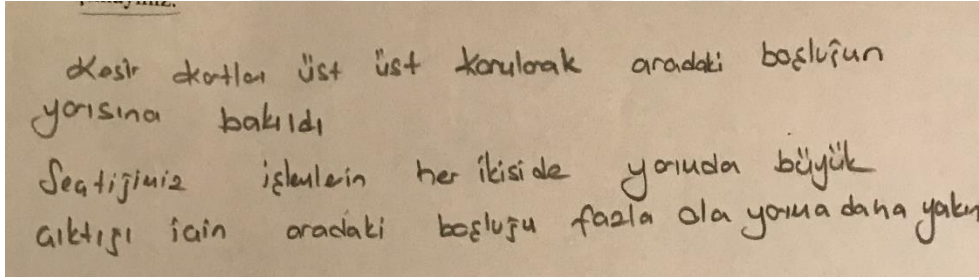 Kesir kartları üst üst konularak aradaki boşluğun
yarısına bakıldı
Seçtiğimiz işlemlerin her ikiside yarımdan büyük
çıktığı için aradaki boşluğu fazla ola yarıma daha yakın